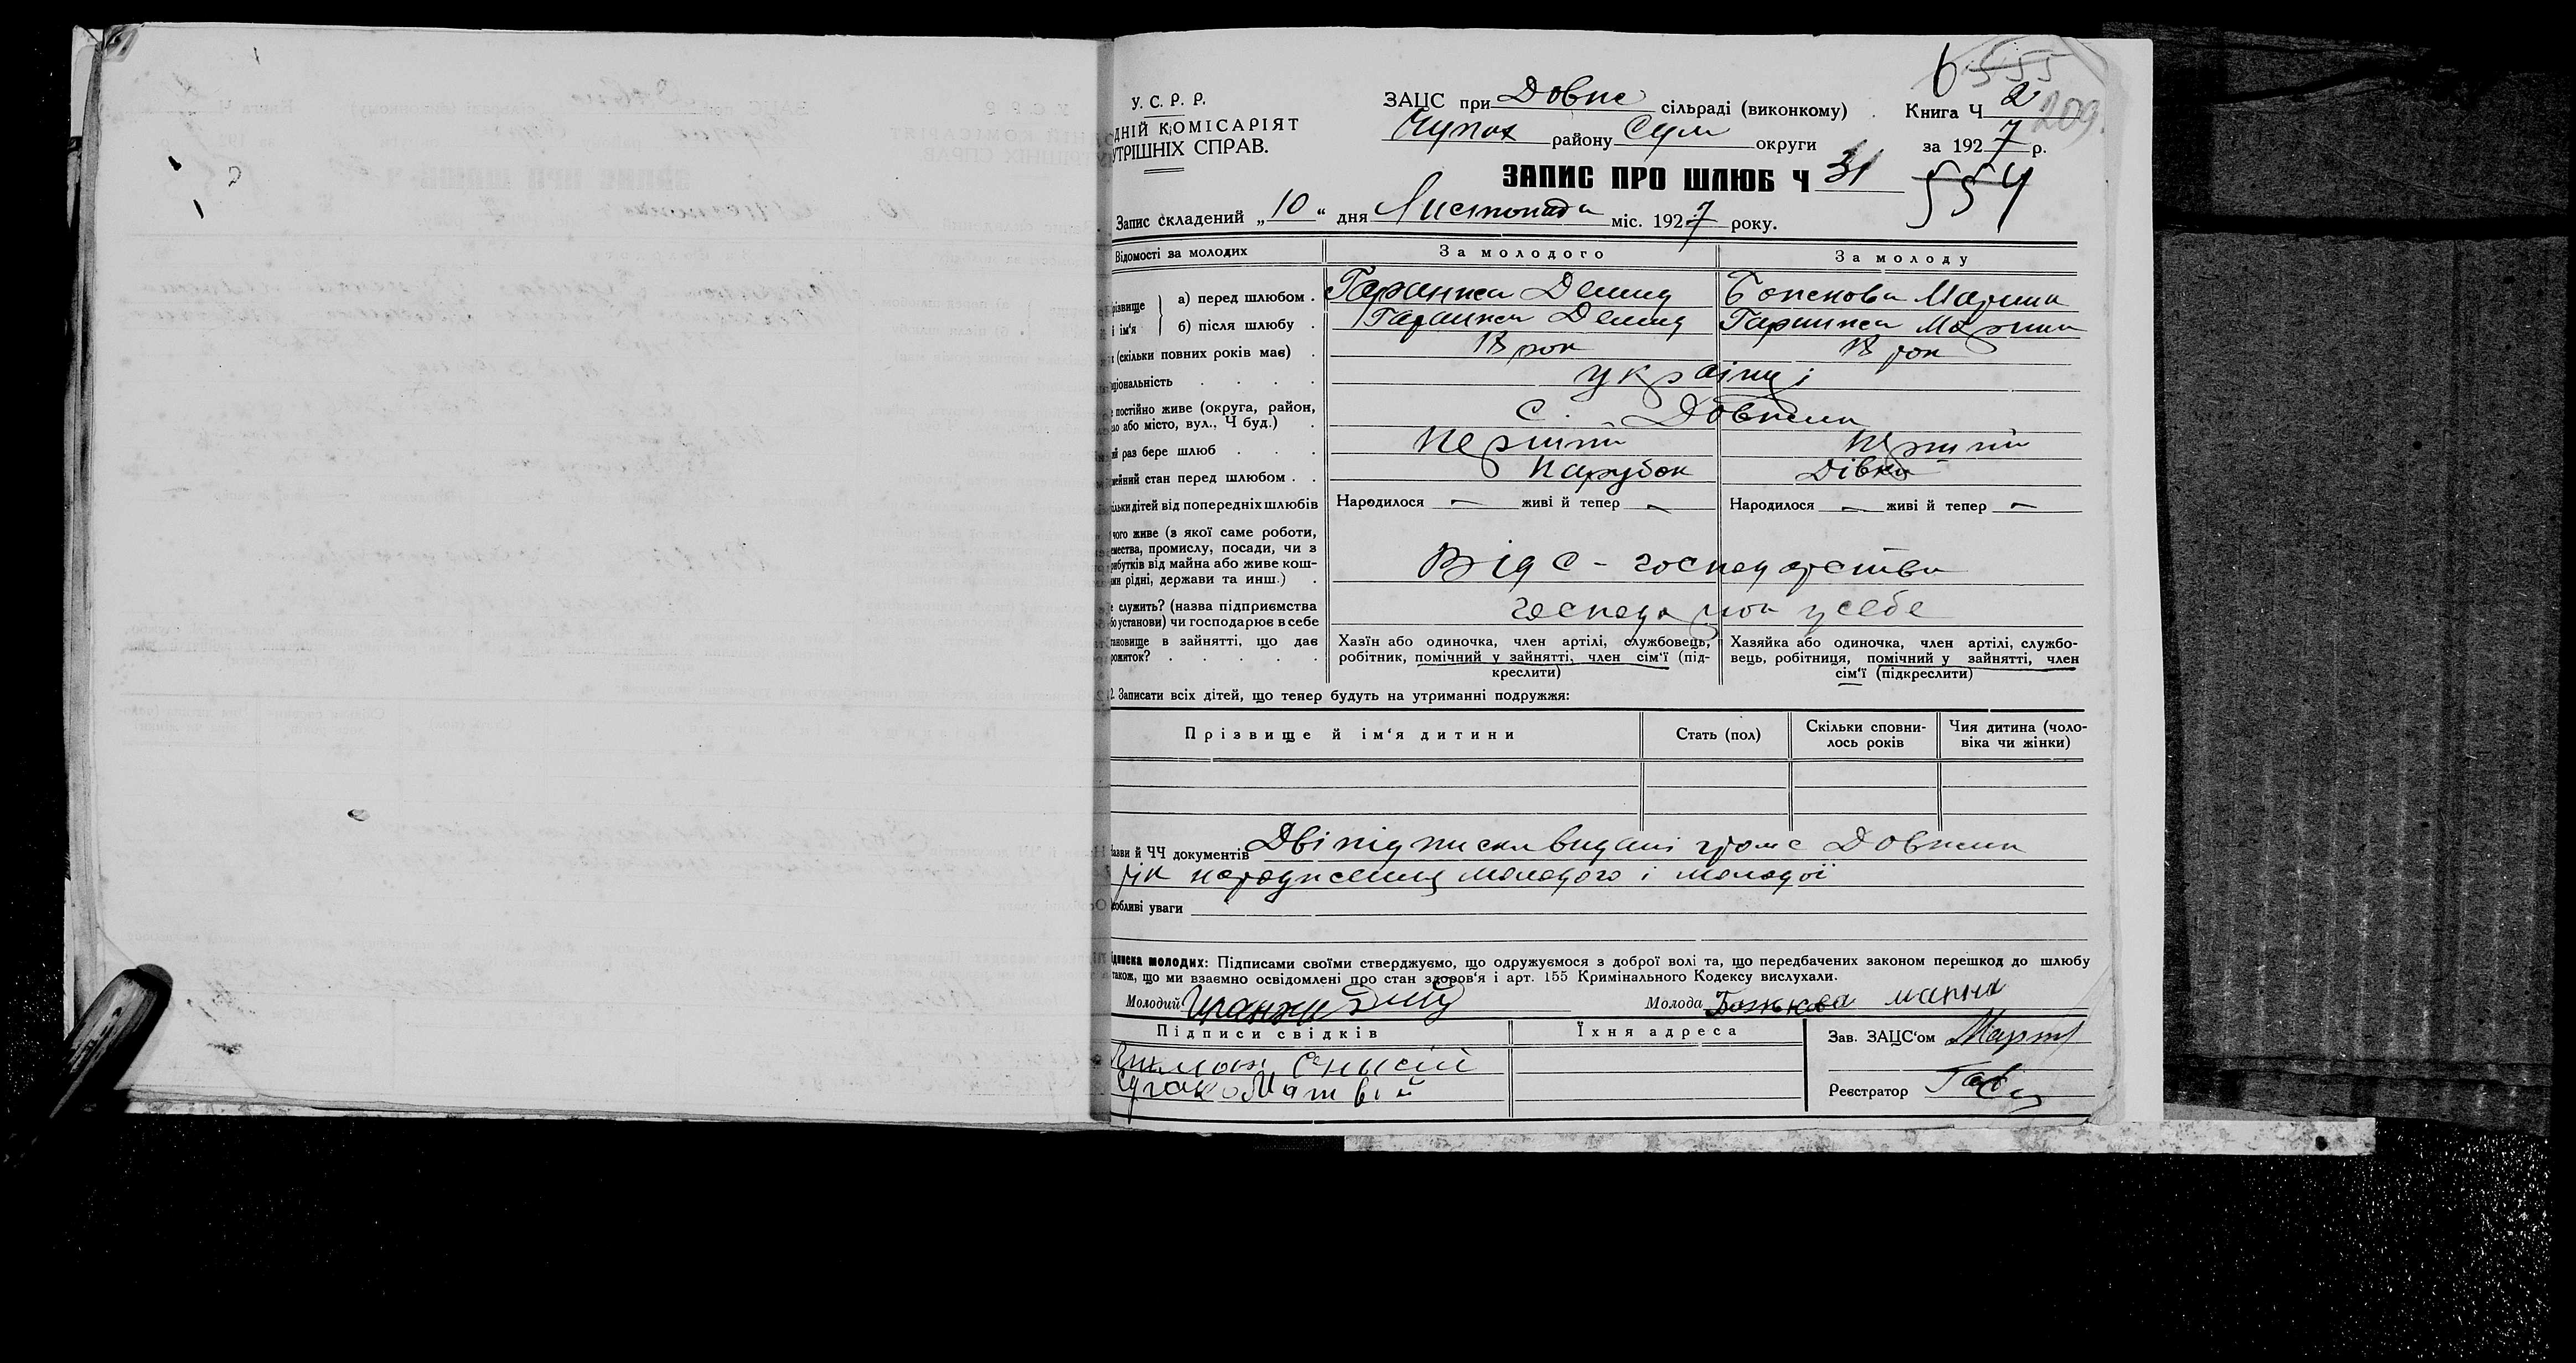 6 555
У. С. Р. Р.
ЗАЦС при Довже сільраді (виконкому)
Книга Ч 2
209
ДНІЙ КОМІСАРІЯТ
Чупах району Сум округи
за 1927 р.
УТРІШНІХ СПРАВ.
ЗАПИС ПРО ШЛЮБ Ч 31
554
Запис складений „10“ дня Листопада міс. 1927 року.
Відомості за молодих
За молодого
За молоду
різвище і ім‘я
а) перед шлюбом . Гаранжа Демид
Боженова Марина
б) після шлюбу . Гаранжа Демид
Гаранжа Марина
(скільки повних років має) . 18 рок
18 рок
ціональність . . . . українці
постійно живе (округа, район,
ло або місто, вул., Ч буд.) . с. Довжик
ий раз бере шлюб . . . перший
перший
мейний стан перед шлюбом . . парубок
дівка
ільки дітей від попередніх шлюбів
Народилося — живі й тепер —
Народилося — живі й тепер —
чого живе (з якої саме роботи,
емества, промислу, посади, чи з
рибутків від майна або живе кош-
ми рідні, держави та инш.) . Від с-господарства
е служить? (назва підприємства
бо установи) чи господарює в себе
у себе
тановище в зайнятті, що дає
рожиток? . . . . .
Хазїн або одиночка, член артілі, службовець,
робітник, помічний у зайнятті, член сім‘ї (під-
креслити)
Хазяйка або одиночка, член артілі, службо-
вець, робітниця, помічний у зайнятті, член
сім‘ї (підкреслити)
2. Записати всіх дітей, що тепер будуть на утриманні подружжя:
Прізвище й ім‘я дитини
Стать (пол)
Скільки сповни-
лось років
Чия дитина (чоло-
віка чи жінки)
азви й ЧЧ документів Дві підписки видані гром с Довжик
рік народження молодого і молодої
собливі уваги
дписка молодих: Підписами своїми стверджуємо, що одружуємося з доброї волі та, що передбачених законом перешкод до шлюбу
також, що ми взаємно освідомлені про стан здоров‘я і арт. 155 Кримінального Кодексу вислухали.
Молодий
Молода Божкова марина
Підписи свідків
Їхня адреса
Зав. ЗАЦС‘ом
Матвій
Реєстратор